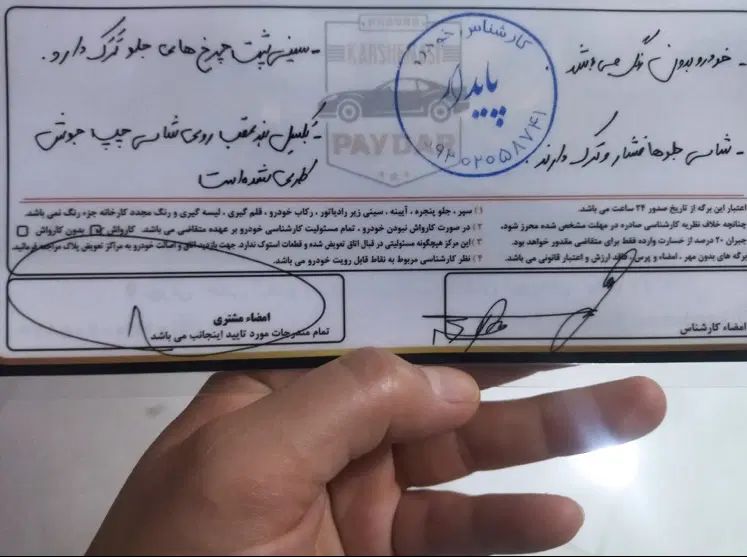 - خودرو بدون رنگ می باشد
- شاسی جلوها فشار و ترک دارند.
- سینی پشت چرخ های جلو ترک دارد.
- کپسیل بند عقب روی شاسی چپ جوش کاری شده است
KARSHENASI
PAYDAR
کارشناس خودرو
پایدار
۰۹۲۰۲۰۵۸۷۴۱
اعتبار این برگه از تاریخ صدور ۲۴ ساعت می باشد.
چنانچه خلاف نظریه کارشناسی صادره در مهلت مشخص شده محرز شود،
جبران ۲۰ درصد از خسارت وارده فقط برای متقاضی مقدور خواهد بود.
برگه های بدون مهر ، امضاء و پرس فاقد ارزش و اعتبار قانونی می باشد.
۱) سپر ، جلو پنجره ، آیینه ، سینی زیر رادیاتور ، رکاب خودرو ، قلم گیری ، لیسه گیری و رنگ مجدد کارخانه جزء رنگ نمی باشد.
۲) در صورت کارواش نبودن خودرو ، تمام مسئولیت کارشناسی خودرو بر عهده متقاضی می باشد. کارواش بدون کارواش
۳) این مرکز هیچگونه مسئولیتی در قبال اتاق تعویض شده و قطعات استوک ندارد جهت بازدید اتاق و اصالت خودرو به مراکز تعویض پلاک مراجعه فرمائید.
۴) نظر کارشناسی مربوط به نقاط قابل رویت خودرو می باشد.
امضاء کارشناس
امضاء مشتری
تمام مندرجات مورد تایید اینجانب می باشد